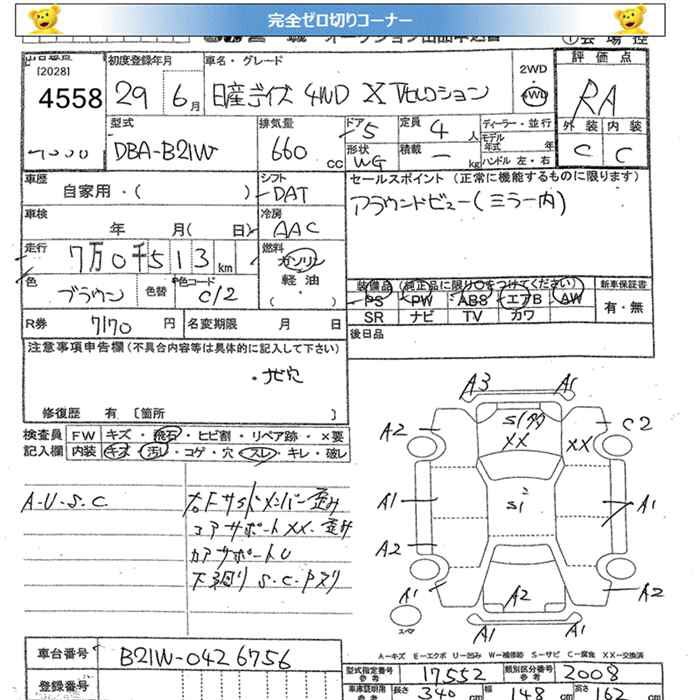 完全ゼロ切りコーナー
[2028]
4558
初度登録年月
29 6月
車名・グレード
日産デイズ 4WD X Vセレクション
2WD
・
4WD
評価点
RA
外装 内装
C C
型式
DBA-B21W
排気量
660 cc
ドア
5
定員
4 人
形状
WG
積載
ー kg
ディーラー・並行
モデル年式 年
ハンドル 左・右
車歴
自家用・( )
シフト
DAT
セールスポイント (正常に機能するものに限ります)
アラウンドビュー(ミラー内)
車検
年 月( 日)
冷房
AAC
走行
7万0千513km
燃料
ガソリン
軽油
・( )
色
ブラウン
色替
色コード
C/2
装備品 (純正品に限り○をつけてください)
PS PW ABS エアB AW
SR ナビ TV カワ
新車保証書
有・無
R券
7170 円
名変期限 月 日
後日品
注意事項申告欄 (不具合内容等は具体的に記入して下さい)
修復歴 有 〔箇所 〕
検査員 FW キズ・飛石・ヒビ割・リペア跡・×要
記入欄 内装 キズ・汚レ・コゲ・穴・スレ・キレ・破レ
A-U.S.C.
右Fサイドメンバー歪み
コアサポートXX.歪み
カアサポートU
下廻り S.C.Pスリ
A3 A1
A2 S1 XX XX C2
A1 S1 A1
A2
A1 A2 A2
スペア
A1 A1
A-キズ E-エクボ U-凹み W-補修跡 S-サビ C-腐食 XX-交換済
車台番号
B21W-0426756
登録番号
型式指定番号 参考
17552
類別区分番号 参考
2008
車庫証明用 参考
長さ 340 cm
幅 148 cm
高さ 162 cm